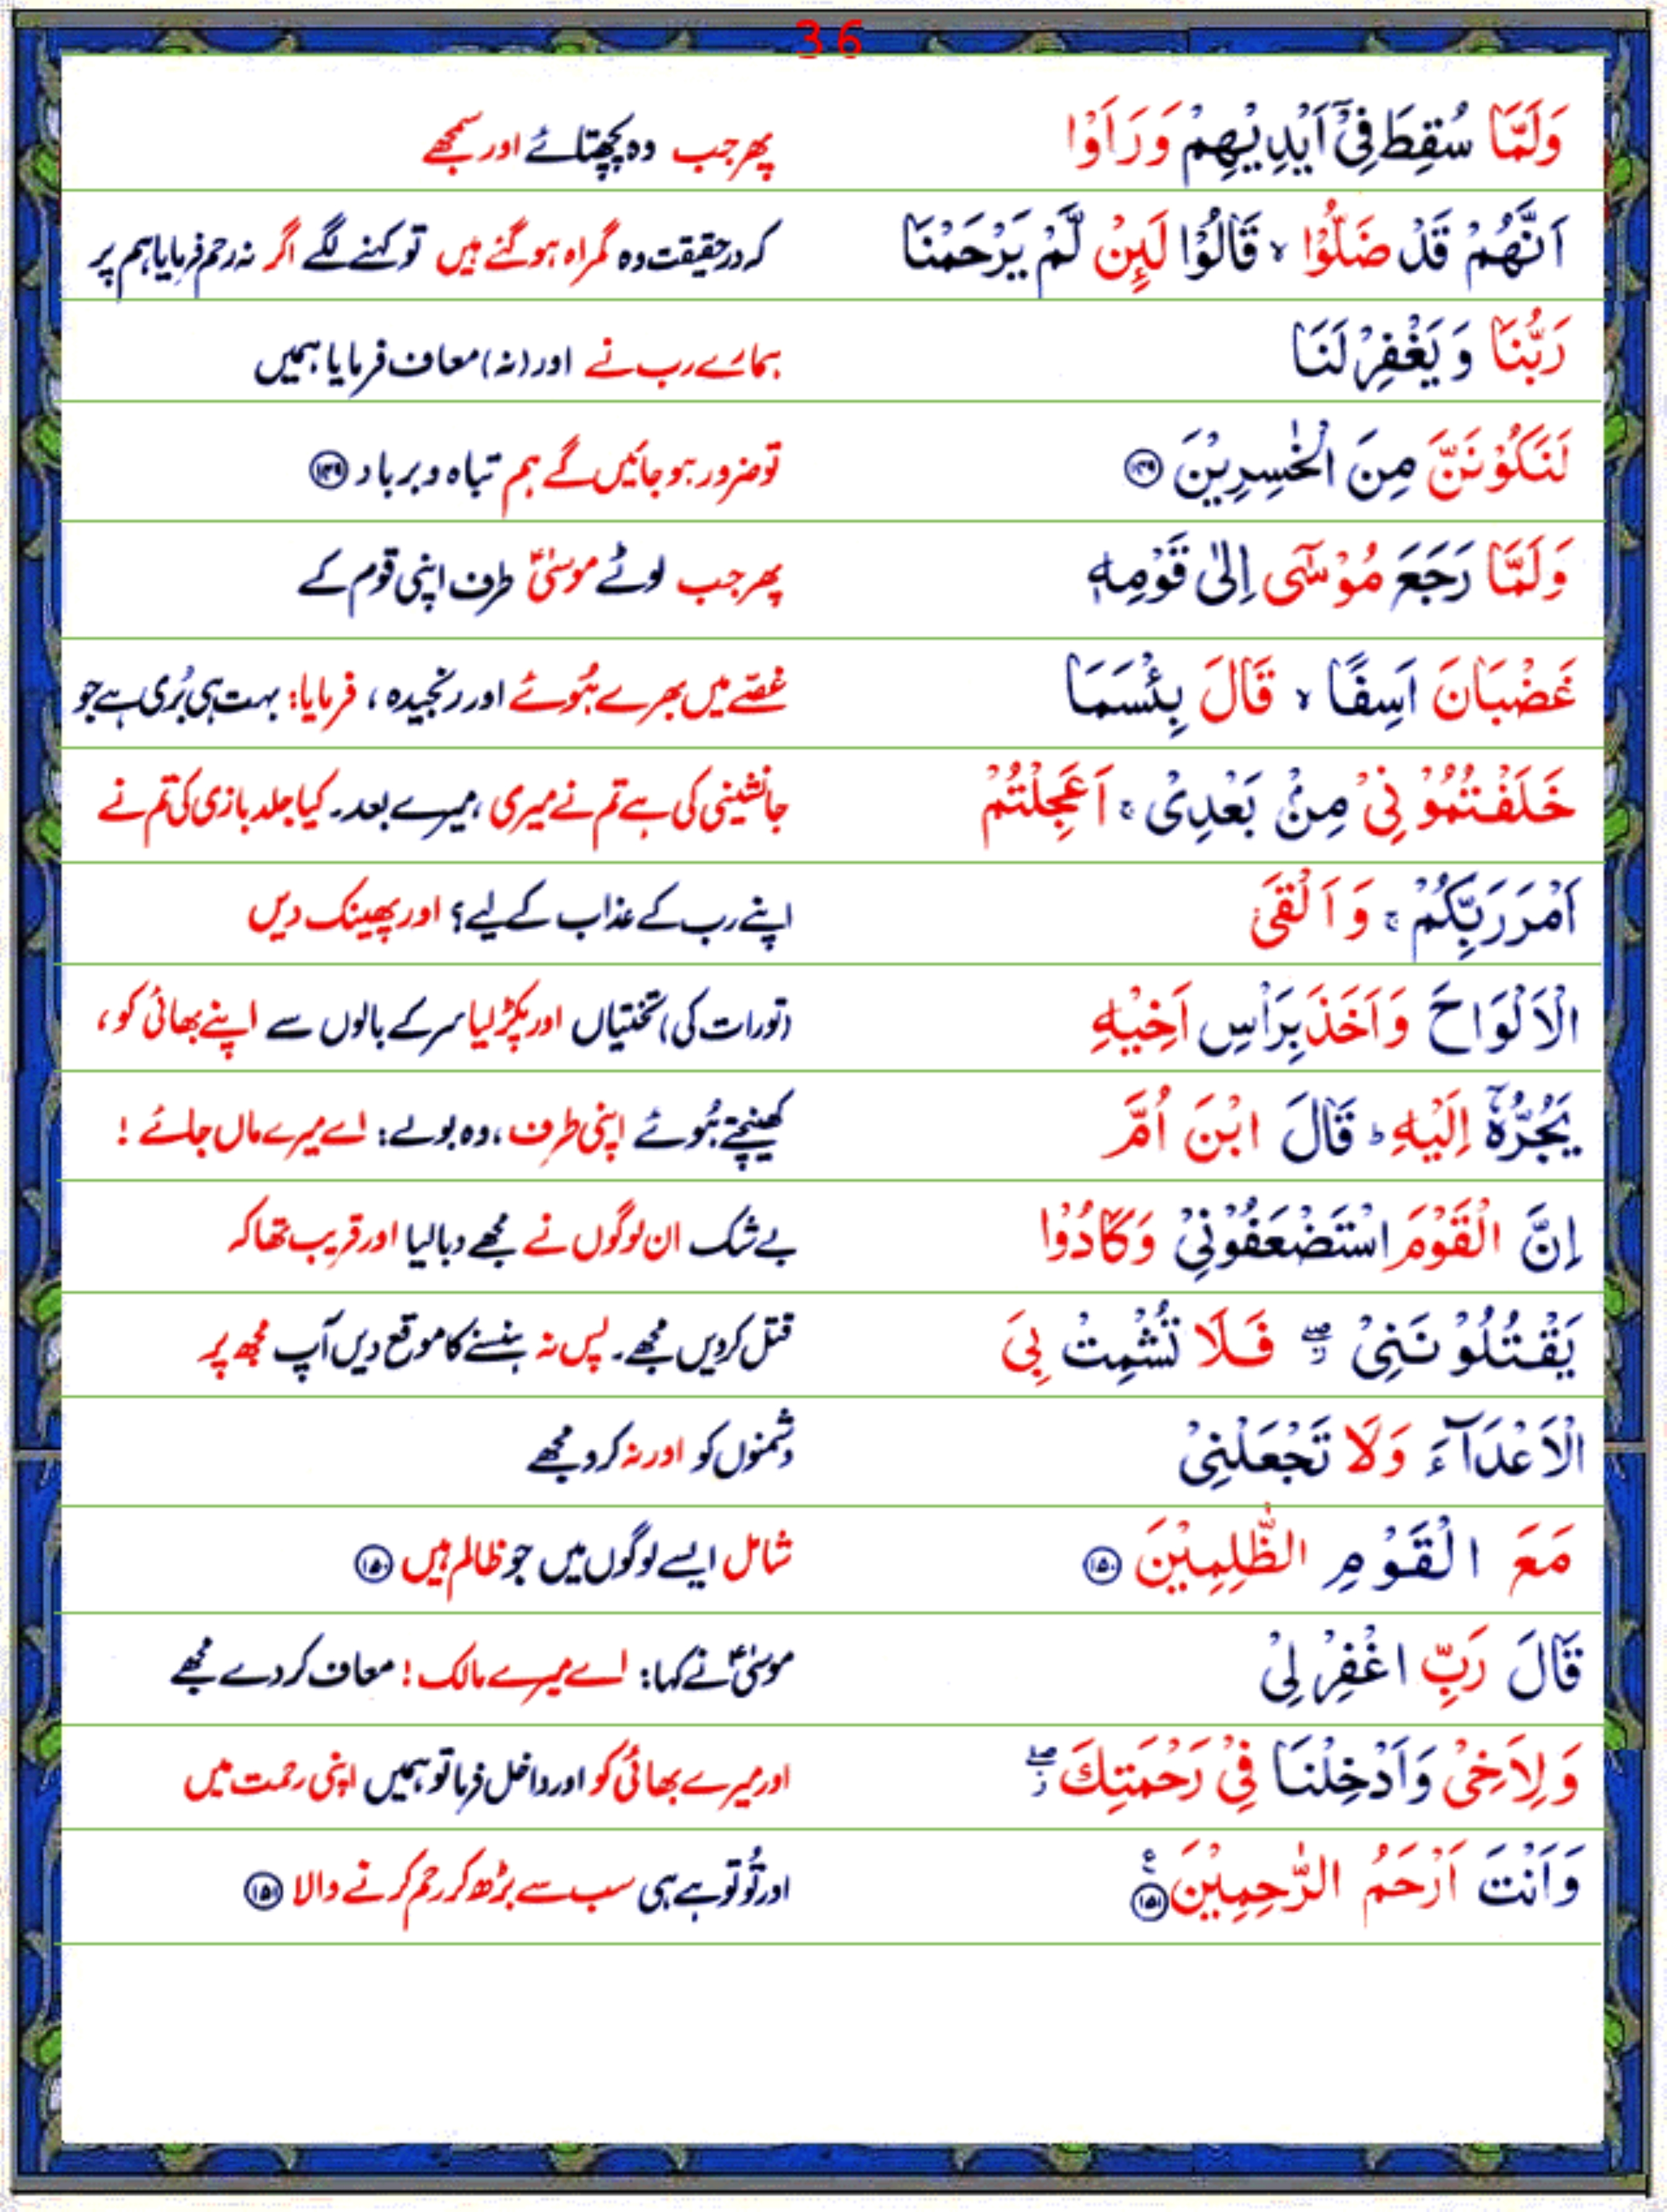 36
وَلَمَّا سُقِطَ فِيْٓ اَيْدِيْهِمْ وَرَاَوْا پھر جب وہ پچھتائے اور سمجھے
اَنَّهُمْ قَدْ ضَلُّوْا ۙ قَالُوْا لَىِٕنْ لَّمْ يَرْحَمْنَا کہ درحقیقت وہ گمراہ ہوگئے ہیں تو کہنے لگے اگر نہ رحم فرمایا ہم پر
رَبُّنَا وَيَغْفِرْ لَنَا ہمارے رب نے اور (نہ) معاف فرمایا ہمیں
لَنَكُوْنَنَّ مِنَ الْخٰسِرِيْنَ ۝۱۴۹ تو ضرور ہو جائیں گے ہم تباہ و برباد ۝۱۴۹
وَلَمَّا رَجَعَ مُوْسٰٓى اِلٰى قَوْمِهٖ پھر جب لوٹے موسیٰؑ طرف اپنی قوم کے
غَضْبَانَ اَسِفًا ۙ قَالَ بِئْسَمَا غصّے میں بھرے ہُوئے اور رنجیدہ، فرمایا: بہت ہی بُری ہے جو
خَلَفْتُمُوْنِيْ مِنْۢ بَعْدِيْ ۚ اَعَجِلْتُمْ جانشینی کی ہے تم نے میری، میرے بعد۔ کیا جلد بازی کی تم نے
اَمْرَ رَبِّكُمْ ۚ وَاَلْقَى اپنے رب کے عذاب کے لیے؟ اور پھینک دیں
الْاَلْوَاحَ وَاَخَذَ بِرَاْسِ اَخِيْهِ (تورات کی) تختیاں اور پکڑ لیا سر کے بالوں سے اپنے بھائی کو،
يَجُرُّهٗٓ اِلَيْهِ ؕ قَالَ ابْنَ اُمَّ کھینچتے ہُوئے اپنی طرف، وہ بولے: اے میرے ماں جائے !
اِنَّ الْقَوْمَ اسْتَضْعَفُوْنِيْ وَكَادُوْا بے شک ان لوگوں نے مجھے دبالیا اور قریب تھا کہ
يَقْتُلُوْنَنِيْ ۖ ز فَلَا تُشْمِتْ بِيَ قتل کر دیں مجھے۔ پس نہ ہنسنے کا موقع دیں آپ مجھ پر
الْاَعْدَآءَ وَلَا تَجْعَلْنِيْ دشمنوں کو اور نہ کرو مجھے
مَعَ الْقَوْمِ الظّٰلِمِيْنَ ۝۱۵۰ شامل ایسے لوگوں میں جو ظالم ہیں ۝۱۵۰
قَالَ رَبِّ اغْفِرْ لِيْ موسیٰؑ نے کہا: اے میرے مالک ! معاف کر دے مجھے
وَلِاَخِيْ وَاَدْخِلْنَا فِيْ رَحْمَتِكَ ۖ ز اور میرے بھائی کو اور داخل فرما تو ہمیں اپنی رحمت میں
وَاَنْتَ اَرْحَمُ الرّٰحِمِيْنَ ۝۱۵۱ ع اور تُو تو ہے ہی سب سے بڑھ کر رحم کرنے والا ۝۱۵۱